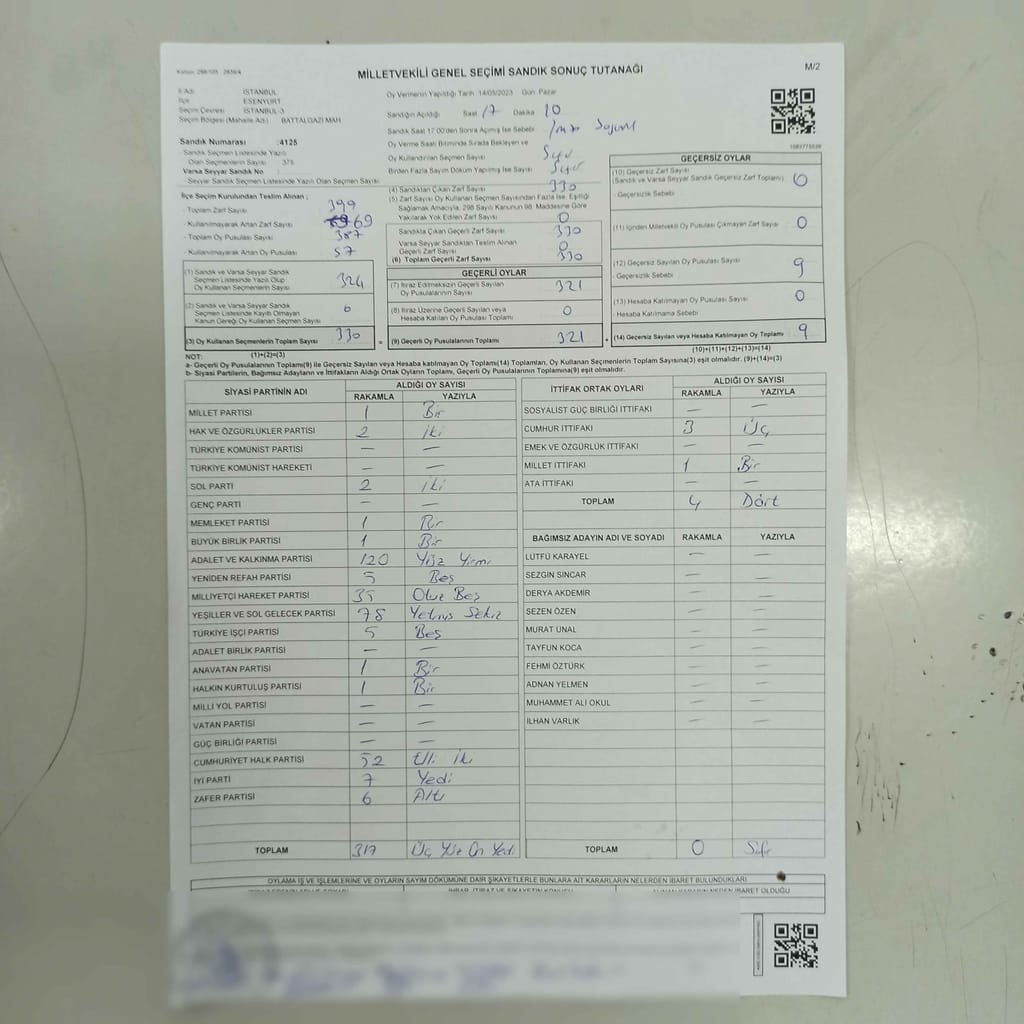 M/2
MİLLETVEKİLİ GENEL SEÇİMİ SANDIK SONUÇ TUTANAĞI
İl Adı İSTANBUL
İlçe ESENYURT
Seçim Çevresi İSTANBUL-3
Seçim Bölgesi (Mahalle Adı) BATTALGAZİ MAH
Oy Vermenin Yapıldığı Tarih 14/05/2023 Gün Pazar
Sandığın Açıldığı Saat 17 Dakika 10
Sandık Saat 17:00'den Sonra Açılmış İse Sebebi
Oy Verme Saati Bitiminde Sırada Bekleyen ve
Oy Kullandırılan Seçmen Sayısı Sıfır
Birden Fazla Sayım Döküm Yapılmış İse Sayısı Sıfır
Sandık Numarası : 4125
Sandık Seçmen Listesinde Yazılı
Olan Seçmenlerin Sayısı 375
Varsa Seyyar Sandık No
Seyyar Sandık Seçmen Listesinde Yazılı Olan Seçmen Sayısı
İlçe Seçim Kurulundan Teslim Alınan ;
- Toplam Zarf Sayısı 399
- Kullanılmayarak Artan Zarf Sayısı 69
- Toplam Oy Pusulası Sayısı 387
- Kullanılmayarak Artan Oy Pusulası 57
(1) Sandık ve Varsa Seyyar Sandık
Seçmen Listesinde Yazılı Olup
Oy Kullanan Seçmenlerin Sayısı 324
(2) Sandık ve Varsa Seyyar Sandık
Seçmen Listesinde Kayıtlı Olmayan
Kanun Gereği Oy Kullanan Seçmen Sayısı 6
(3) Oy Kullanan Seçmenlerin Toplam Sayısı 330
(1)+(2)=(3)
(4) Sandıktan Çıkan Zarf Sayısı 330
(5) Zarf Sayısı Oy Kullanan Seçmen Sayısından Fazla İse, Eşitliği
Sağlamak Amacıyla, 298 Sayılı Kanunun 98. Maddesine Göre
Yakılarak Yok Edilen Zarf Sayısı 0
Sandıkta Çıkan Geçerli Zarf Sayısı 330
Varsa Seyyar Sandıktan Teslim Alınan
Geçerli Zarf Sayısı 0
(6) Toplam Geçerli Zarf Sayısı 330
GEÇERLİ OYLAR
(7) İtiraz Edilmeksizin Geçerli Sayılan
Oy Pusulalarının Sayısı 321
(8) İtiraz Üzerine Geçerli Sayılan veya
Hesaba Katılan Oy Pusulalarının Toplamı 0
= (9) Geçerli Oy Pusulalarının Toplamı 321
GEÇERSİZ OYLAR
(10) Geçersiz Zarf Sayısı
(Sandık ve Varsa Seyyar Sandık Geçersiz Zarf Toplamı) 0
- Geçersizlik Sebebi
(11) İçinden Milletvekili Oy Pusulası Çıkmayan Zarf Sayısı 0
(12) Geçersiz Sayılan Oy Pusulası Sayısı 9
- Geçersizlik Sebebi
(13) Hesaba Katılmayan Oy Pusulası Sayısı 0
- Hesaba Katılmama Sebebi
+ (14) Geçersiz Sayılan veya Hesaba Katılmayan Oy Toplamı 9
(10)+(11)+(12)+(13)=(14)
NOT:
a- Geçerli Oy Pusulalarının Toplamı(9) ile Geçersiz Sayılan veya Hesaba katılmayan Oy Toplamı(14) Toplamları, Oy Kullanan Seçmenlerin Toplam Sayısına(3) eşit olmalıdır. (9)+(14)=(3)
b- Siyasi Partilerin, Bağımsız Adayların ve İttifakların Aldığı Ortak Oyların Toplamı, Geçerli Oy Pusulalarının Toplamına(9) eşit olmalıdır.
SİYASİ PARTİNİN ADI ALDIĞI OY SAYISI
RAKAMLA YAZIYLA
MİLLET PARTİSİ 1 Bir
HAK VE ÖZGÜRLÜKLER PARTİSİ 2 iki
TÜRKİYE KOMÜNİST PARTİSİ — —
TÜRKİYE KOMÜNİST HAREKETİ — —
SOL PARTİ 2 iki
GENÇ PARTİ — —
MEMLEKET PARTİSİ 1 Bir
BÜYÜK BİRLİK PARTİSİ 1 Bir
ADALET VE KALKINMA PARTİSİ 120 Yüz Yirmi
YENİDEN REFAH PARTİSİ 5 Beş
MİLLİYETÇİ HAREKET PARTİSİ 35 Otuz Beş
YEŞİLLER VE SOL GELECEK PARTİSİ 78 Yetmiş Sekiz
TÜRKİYE İŞÇİ PARTİSİ 5 Beş
ADALET BİRLİK PARTİSİ — —
ANAVATAN PARTİSİ 1 Bir
HALKIN KURTULUŞ PARTİSİ 1 Bir
MİLLİ YOL PARTİSİ — —
VATAN PARTİSİ — —
GÜÇ BİRLİĞİ PARTİSİ — —
CUMHURİYET HALK PARTİSİ 52 Elli iki
İYİ PARTİ 7 Yedi
ZAFER PARTİSİ 6 Altı
TOPLAM 317 Üç Yüz On Yedi
İTTİFAK ORTAK OYLARI ALDIĞI OY SAYISI
RAKAMLA YAZIYLA
SOSYALİST GÜÇ BİRLİĞİ İTTİFAKI — —
CUMHUR İTTİFAKI 3 Üç
EMEK VE ÖZGÜRLÜK İTTİFAKI — —
MİLLET İTTİFAKI 1 Bir
ATA İTTİFAKI — —
TOPLAM 4 Dört
BAĞIMSIZ ADAYIN ADI VE SOYADI RAKAMLA YAZIYLA
LÜTFÜ KARAYEL — —
SEZGİN SİNCAR — —
DERYA AKDEMİR — —
SEZEN ÖZEN — —
MURAT ÜNAL — —
TAYFUN KOCA — —
FEHMİ ÖZTÜRK — —
ADNAN YELMEN — —
MUHAMMET ALİ OKUL — —
İLHAN VARLIK — —
TOPLAM 0 Sıfır
OYLAMA İŞ VE İŞLEMLERİNE VE OYLARIN SAYIM DÖKÜMÜNE DAİR ŞİKAYETLERLE BUNLARA AİT KARARLARIN NELERDEN İBARET BULUNDUKLARI